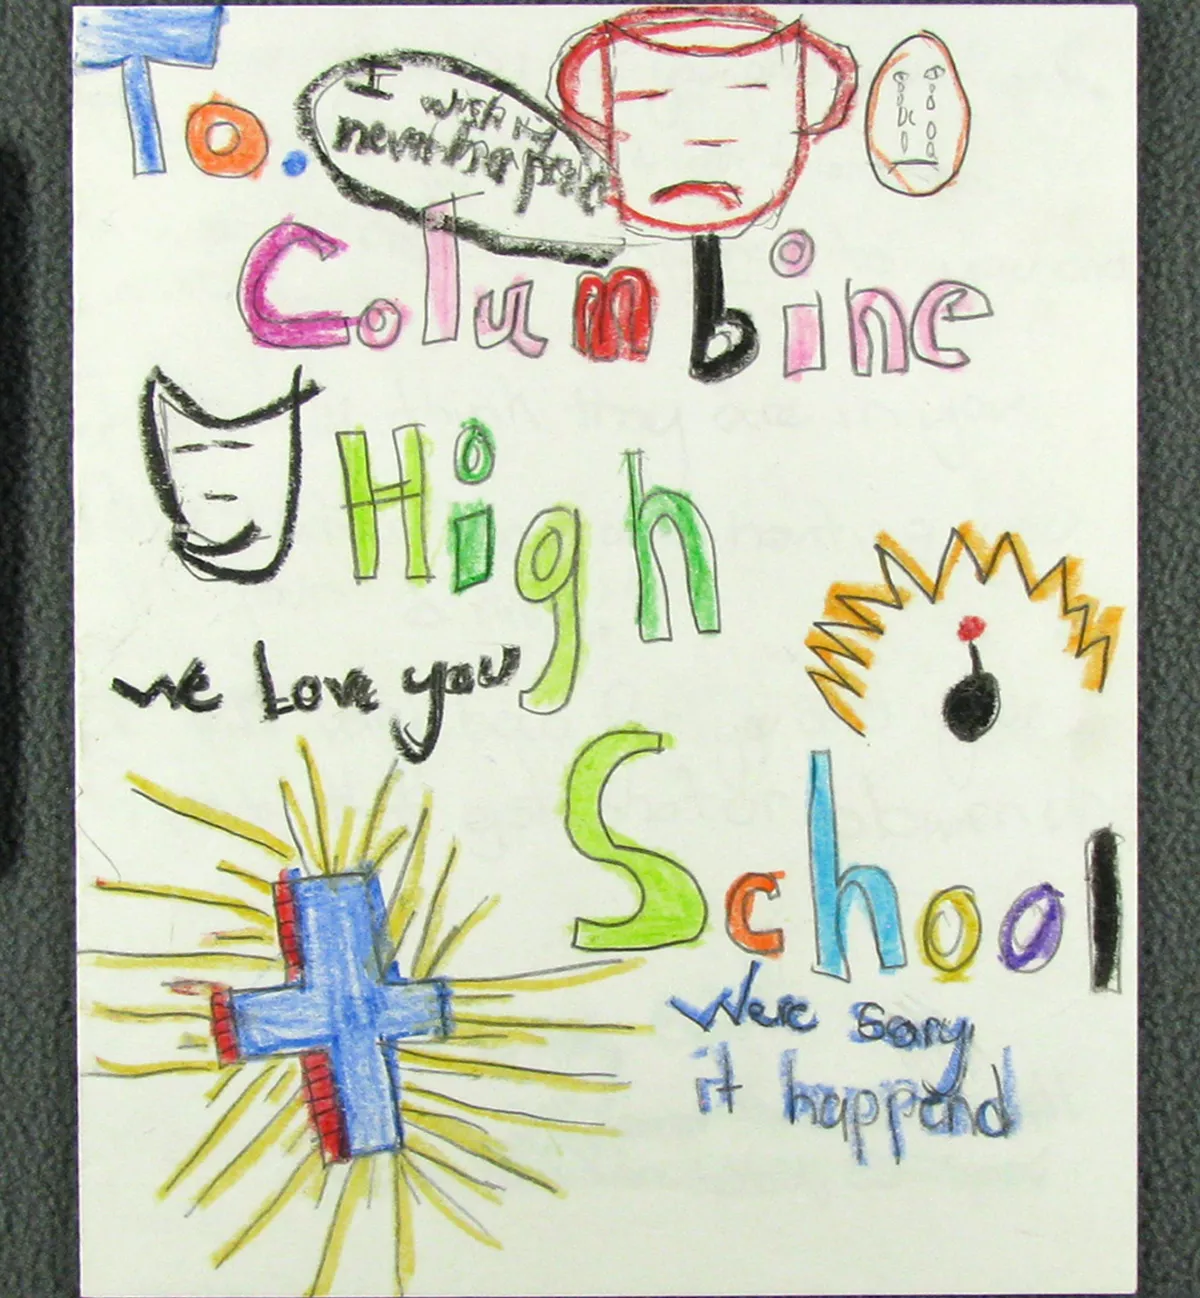 To.
I
wish it
never happend
Columbine
High
we Love you
School
We're sorry
it happend